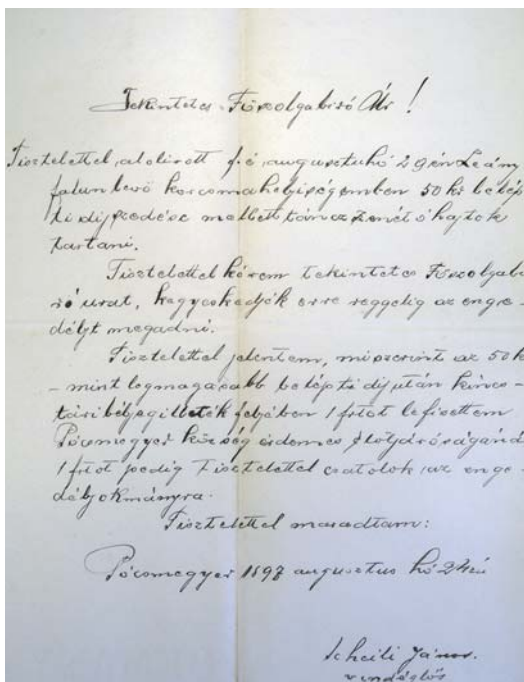 Tekintetes Főszolgabiró Úr!
Tisztelettel alolirott f. é. augusztus hó 2 gén Leány
falun levő korcsmahelyiségemben 50 kr belép
ti dij szedése mellett táncz zenét óhajtok
tartani.
Tisztelettel kérem tekintetes Főszolgabi
ró urat, kegyeskedjék erre reggelig az enge-
délyt megadni.
Tisztelettel jelentem, miszerint az 50 k
- mint legmagasabb belépti dij után kincs-
tári bélyegilleték fejében 1 frtot lefizettem
Pócsmegyer község érdemes
1 frtot pedig Tisztelettel csatolok az enge-
délyokmányra.
Tisztelettel maradtam:
Pócsmegyer 1897 augusztus hó
Scheili János
vendéglős